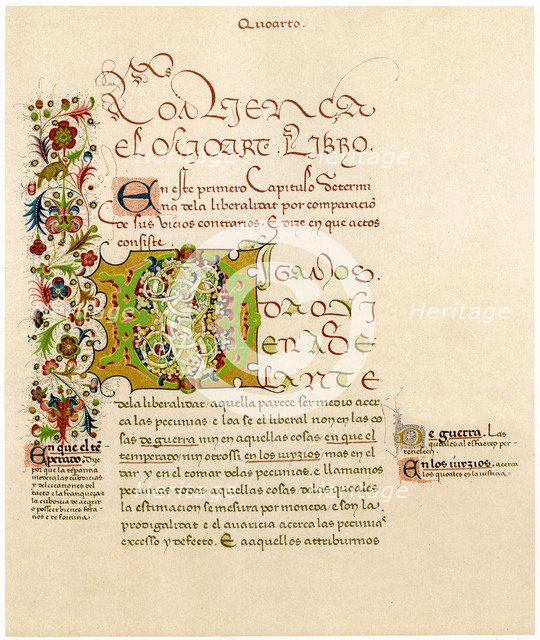 Quoarto.
Comiença
el Quoarto. Libro.
En este primero Capitulo determi
na dela liberalitat por comparacio
de sus vicios contrarios. E dize en que actos
consiste
Digamos.
pronvi
en ade
lante
dela liberalitat / aquella parece ser medio acer
ca las pecunias. e loa se el liberal non en las co
sas de guerra nin en aquellas cosas en que el
temperado nin otrossi en los iuyzios / mas en el
dar y en el tomar delas pecunias. e llamamos
pecunias todas aquellas cosas. delas quoales
la estimacion se mesura por moneda. e son la
prodigalitat e el auaricia acerca las pecunias
excesso y defecto. E a aquellos attribuimos
En que el tẽ
perado. Dize
por que la tẽpranza
modera las cubdicias
y delectaciones del
tacto. e la franqueza
la cubdicia de aqerir
o posseer bienes fora
nos e de fortuna.
De guerra. Las
quoales al esfuerço per
tenescen.
En los iuyzios. acerca
los quoales es la iusticia.
Heritage
Heritage
Heritage
Heritage
Heritage